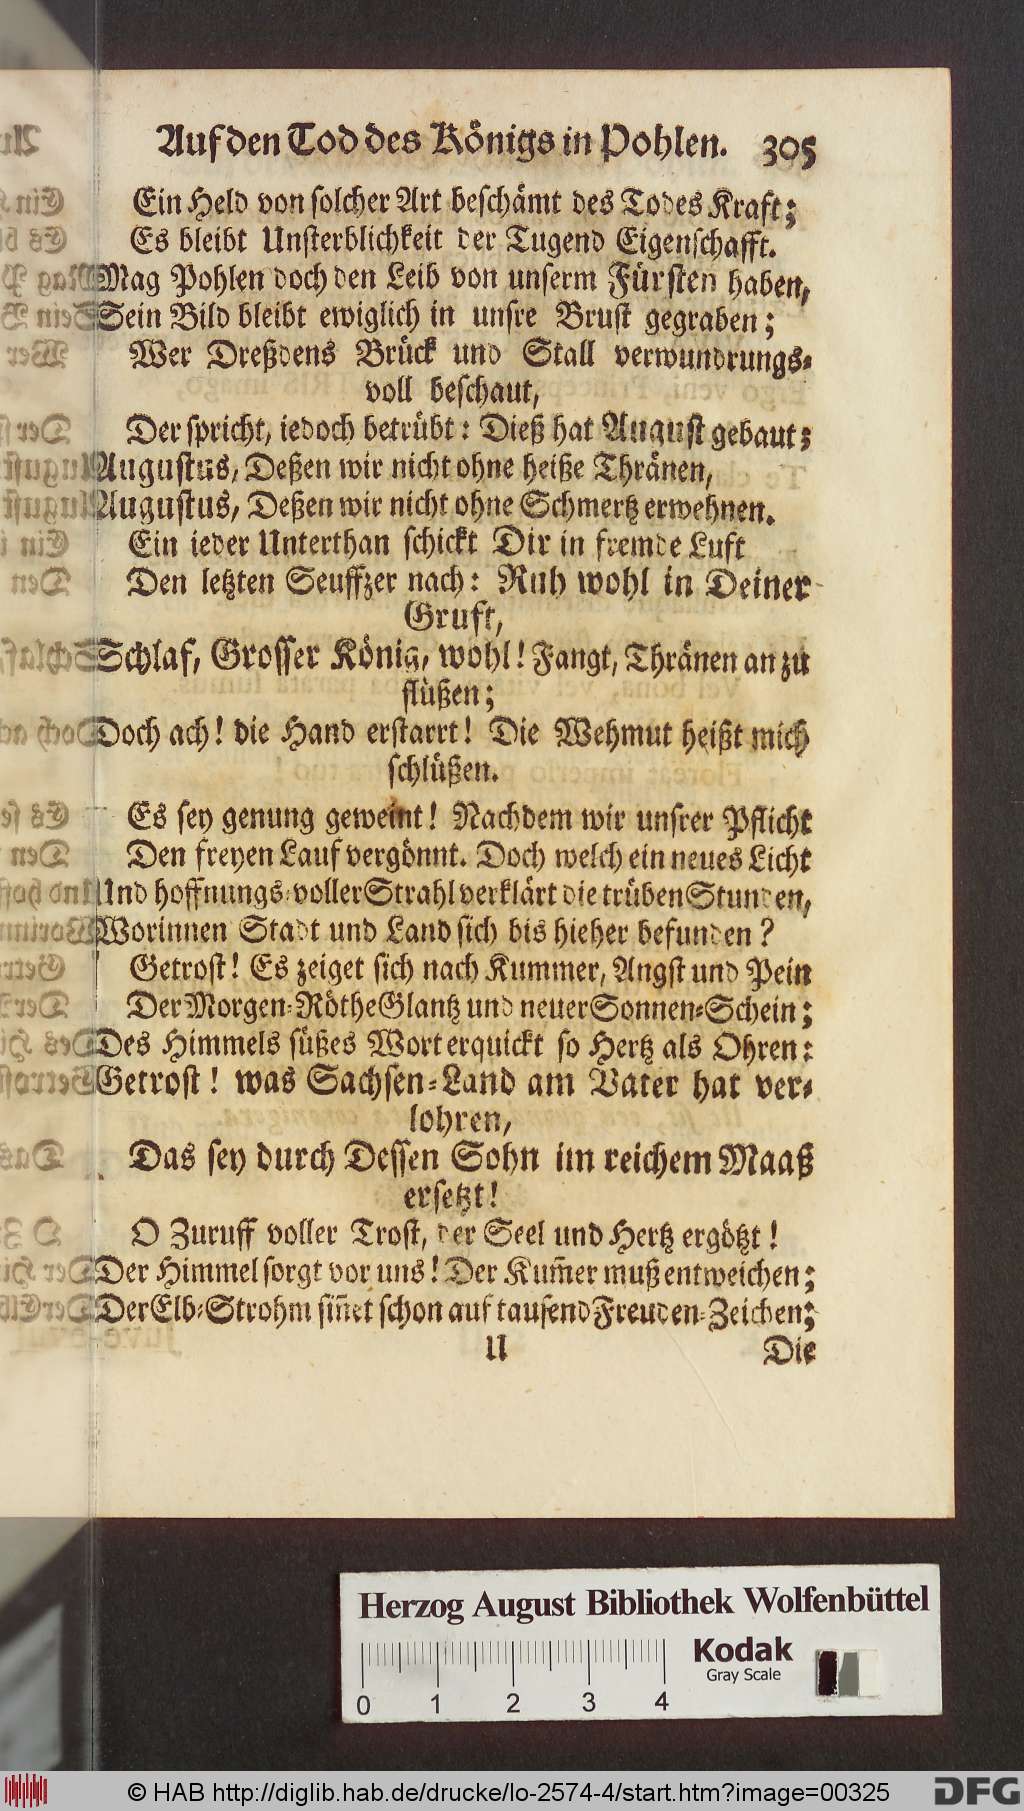 Auf den Tod des Königs in Pohlen. 305
Ein Held von solcher Art beschämt des Todes Kraft;
Es bleibt Unsterblichkeit der Tugend Eigenschafft.
Mag Pohlen doch den Leib von unserm Fürsten haben,
Sein Bild bleibt ewiglich in unsre Brust gegraben;
Wer Dreßdens Brück und Stall verwundrungs-
voll beschaut,
Der spricht, iedoch betrübt: Dieß hat August gebaut;
Augustus, Deßen wir nicht ohne heiße Thränen,
Augustus, Deßen wir nicht ohne Schmertz erwehnen.
Ein ieder Unterthan schickt Dir in fremde Luft
Den letzten Seuffzer nach: Ruh wohl in Deiner
Gruft,
Schlaf, Grosser König, wohl! Fangt, Thränen an zu
flüßen;
Doch ach! die Hand erstarrt! Die Wehmut heißt mich
schlüßen.
Es sey genung geweint! Nachdem wir unsrer Pflicht
Den freyen Lauf vergönnt. Doch welch ein neues Licht
Und hoffnungs-voller Strahl verklärt die trüben Stunden,
Worinnen Stadt und Land sich bis hieher befunden?
Getrost! Es zeiget sich nach Kummer, Angst und Pein
Der Morgen-Röthe Glantz und neuer Sonnen-Schein;
Des Himmels süßes Wort erquickt so Hertz als Ohren:
Getrost! was Sachsen-Land am Vater hat ver-
lohren,
Das sey durch Dessen Sohn im reichem Maaß
ersetzt!
O Zuruff voller Trost, der Seel und Hertz ergötzt!
Der Himmel sorgt vor uns! Der Kum̅er muß entweichen;
Der Elb-Strohm sin̅et schon auf tausend Freuden-Zeichen;
U Die
Herzog August Bibliothek Wolfenbüttel
Kodak
Gray Scale
0 1 2 3 4
© HAB http://diglib.hab.de/drucke/lo-2574-4/start.htm?image=00325
DFG